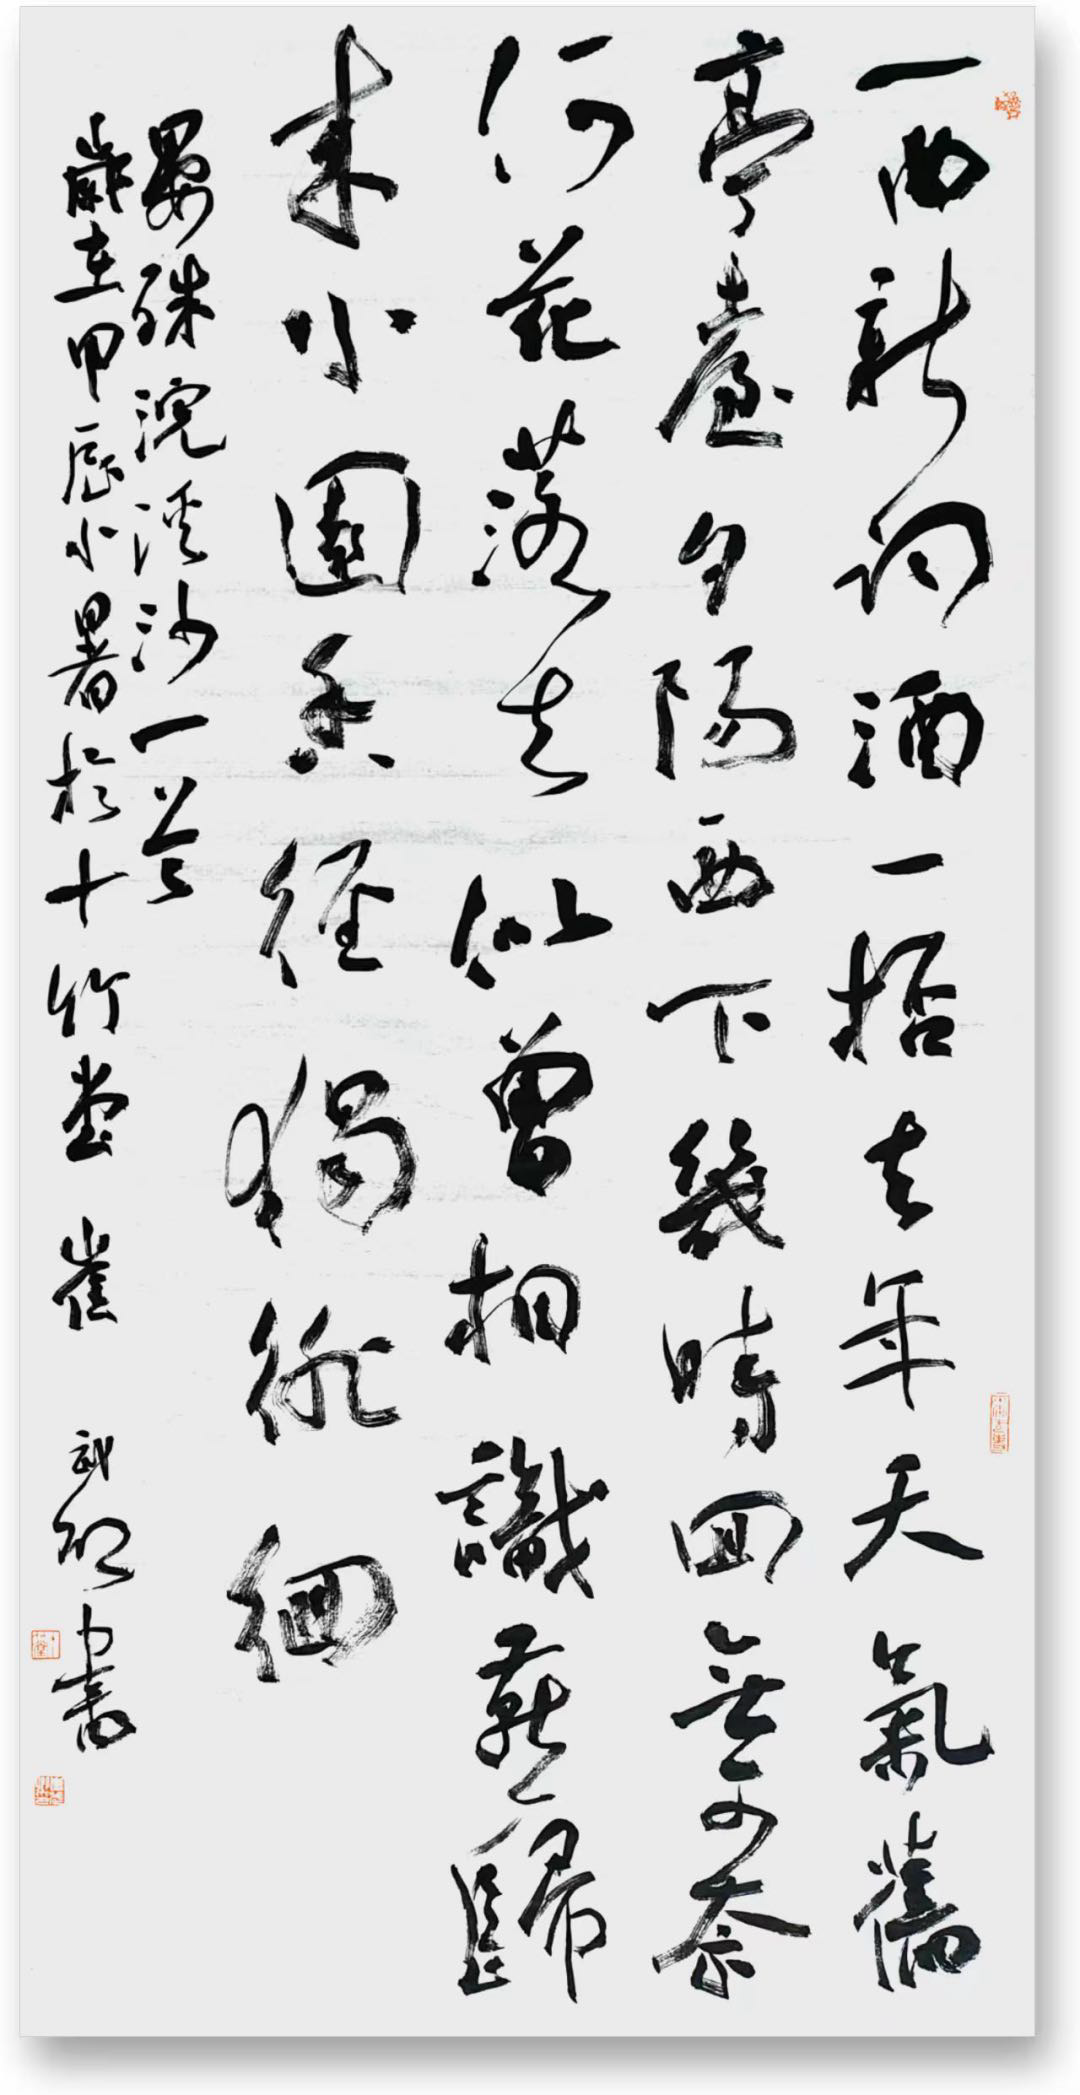 一曲新詞酒一桮去年天氣舊
亭臺夕陽西下幾時回無可奈
何花落去似曾相識燕歸
來小園香徑獨徘徊
晏殊浣溪沙一首
歲在甲辰小暑於十竹堂 崔 書